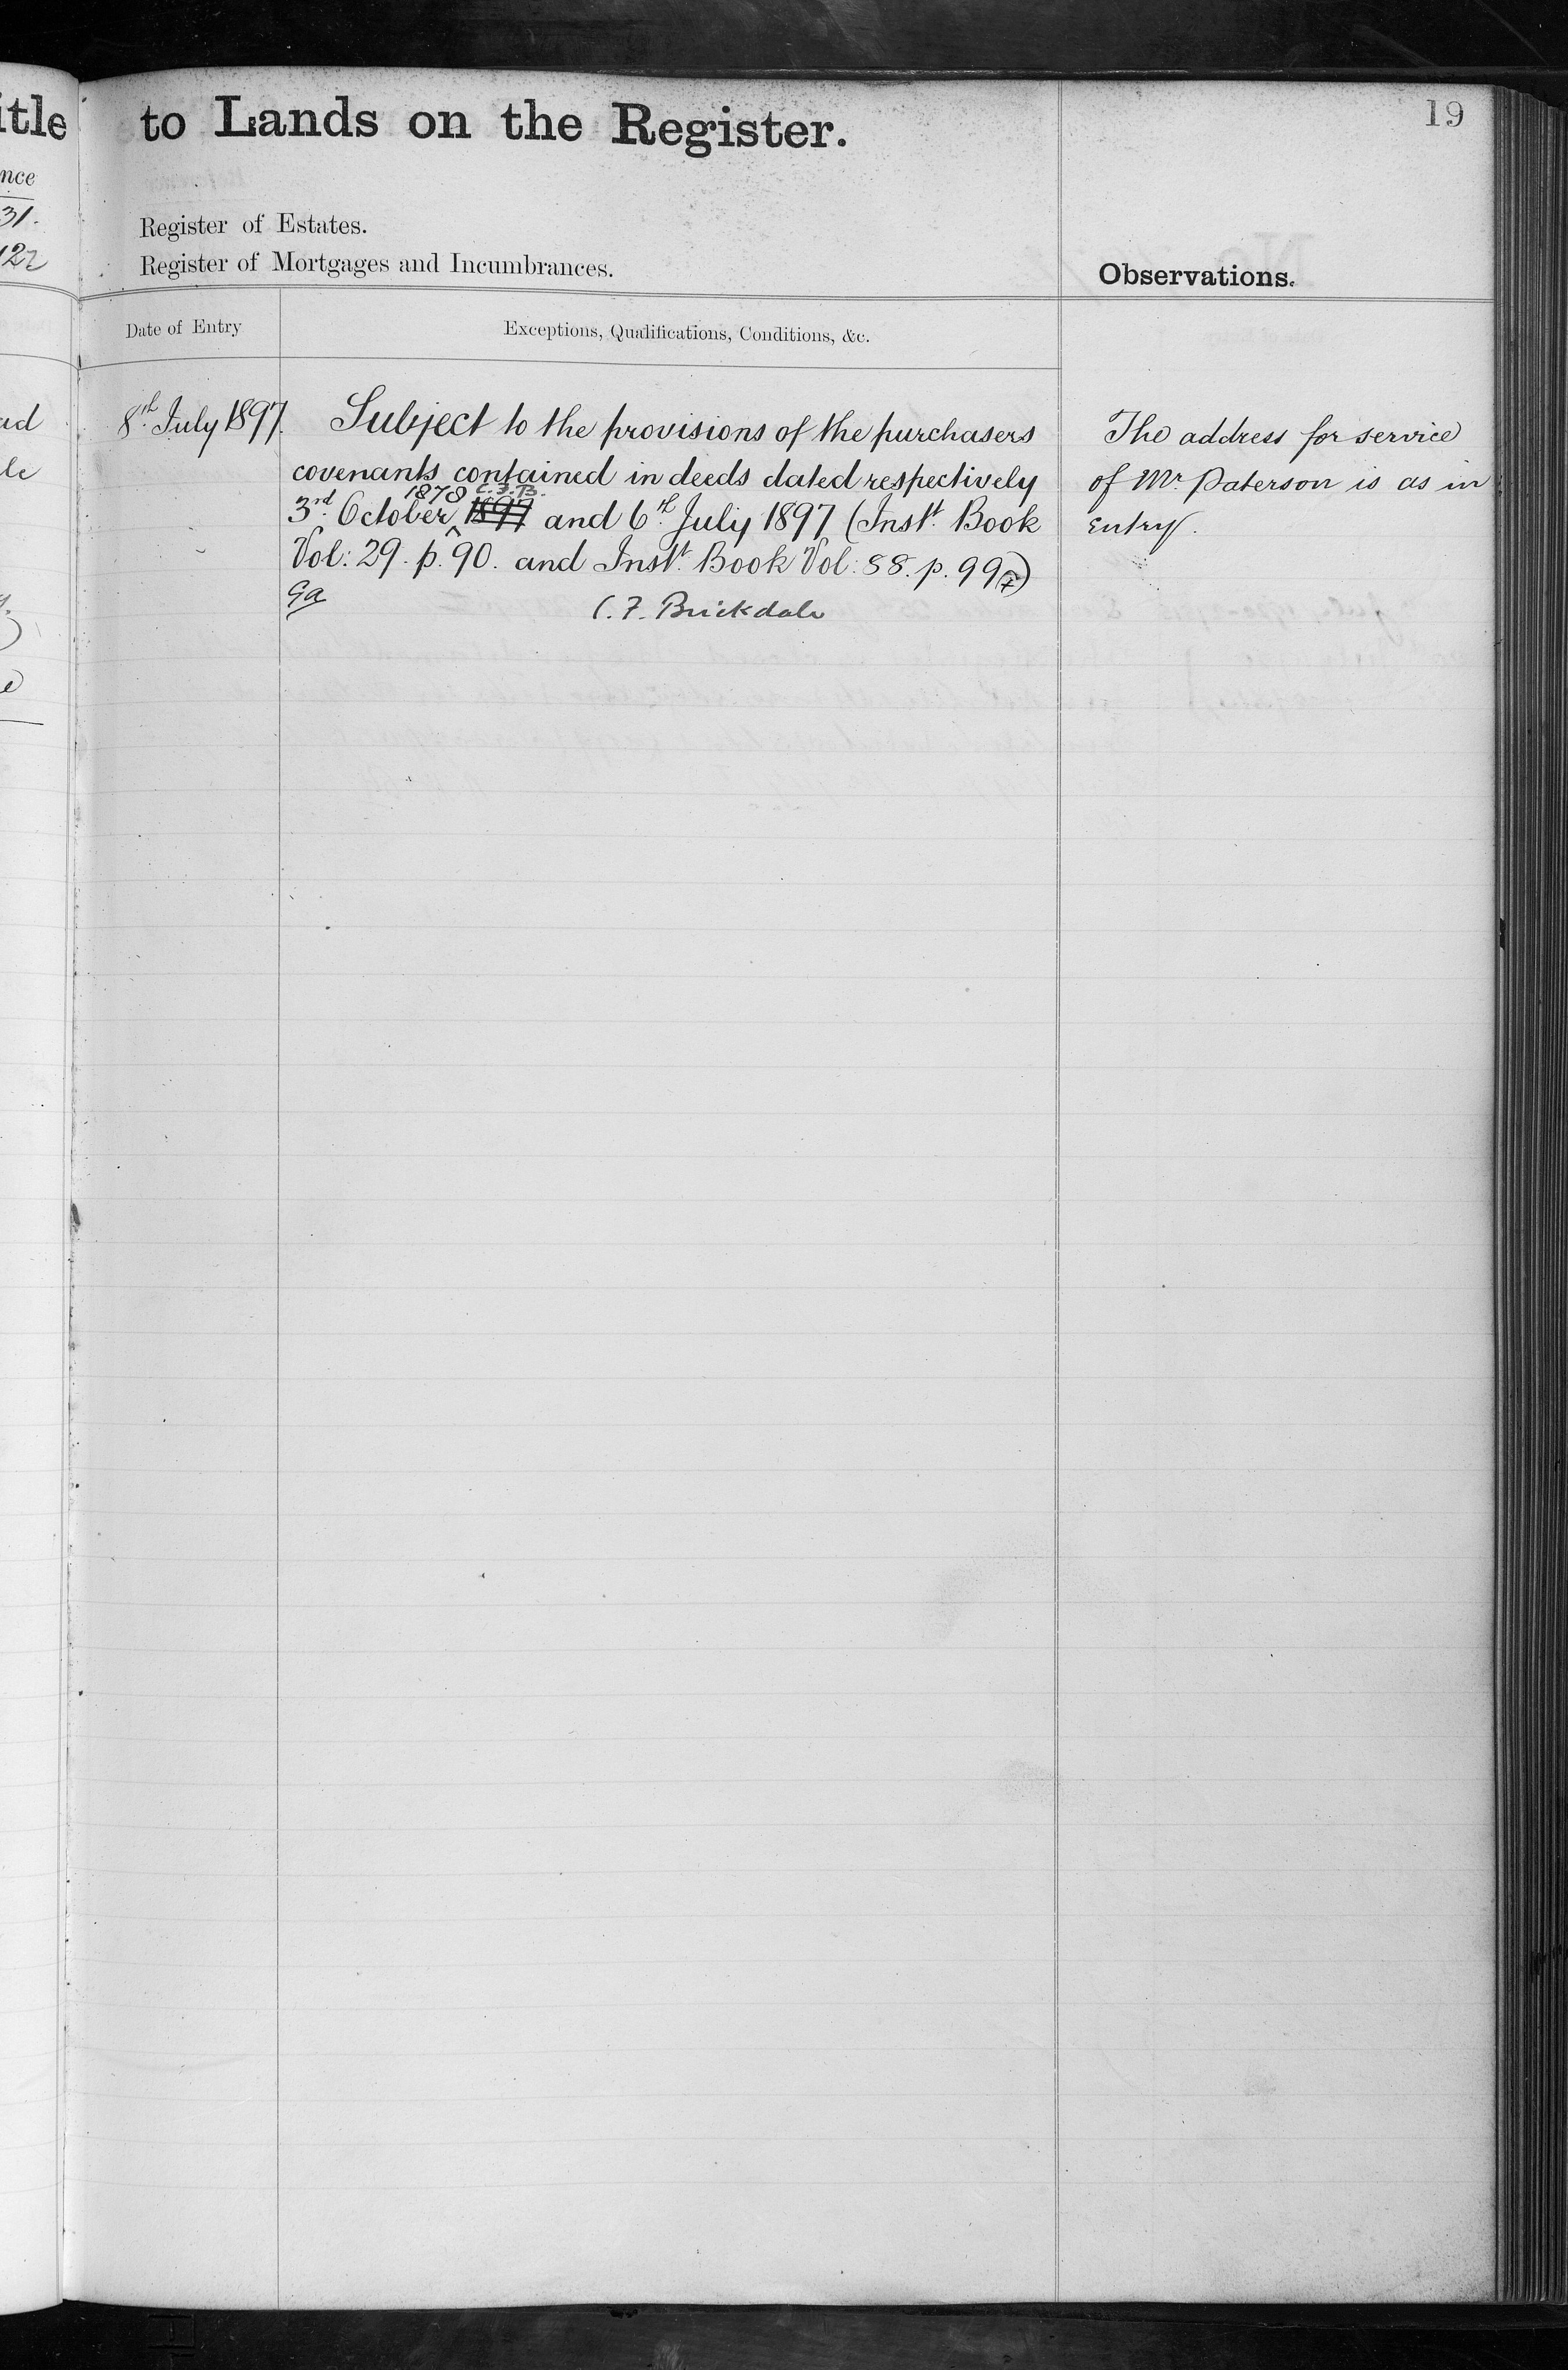 itle to Lands on the Register.
19
nce
31.
122
Register of Estates.
Register of Mortgages and Incumbrances.
Observations.
Date of Entry
Exceptions, Qualifications, Conditions, &c.
8th July 1897.
Subject to the provisions of the purchasers
covenants contained in deeds dated respectively
1878 C.F.B.
3rd October 1897 and 6th July 1897 (Inst. Book
Vol: 29. p. 90. and Inst. Book Vol: 88. p. 99)
Ga
C. F. Brickdale
The address for service
of Mr. Paterson is as in
entry.